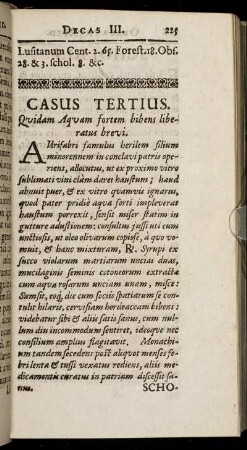 DECAS III. 225
Lusitanum Cent. 2. 65. Forest. 18. Obs.
28. & 3. schol. 8. &c.
CASUS TERTIUS.
Quidam Aquam fortem bibens libe-
ratus brevi.
AUrifabri famulus herilem filium
minorennem in conclavi patris ope-
riens, allocutus, ut ex proximo vitro
sublimati vini clàm daret haustum; haud
abnuit puer, & ex vitro quamvis ignarus,
quod pater pridiè aquâ forti impleverat
haustum porrexit, sensit miser statim in
gutture adustionem: consultus jussi uti cum
unctiosis, ut oleo olivarum copiose, à quo vo-
muit, & hanc mixturam, ℞. Syrup. ex
succo violarum martiarum uncias duas,
mucilaginis seminis cotoneorum extractæ
cum aqua rosarum unciam unam, misce:
Sumsit, roq; die cum sociis spatiatum se con-
tulit hilaris, cervisam herdeaceam bibens:
videbatur sibi & aliis satis sanus, cum nul-
lum diu incommodum sentiret, ideoque nec
consilium amplius flagitavit. Monachium
tandem secedens post aliquot menses fe-
bri lenta & tussi vexatus rediens, aliis me-
dicamentis curatus in patriam discessit sa-
nus. SCHO-